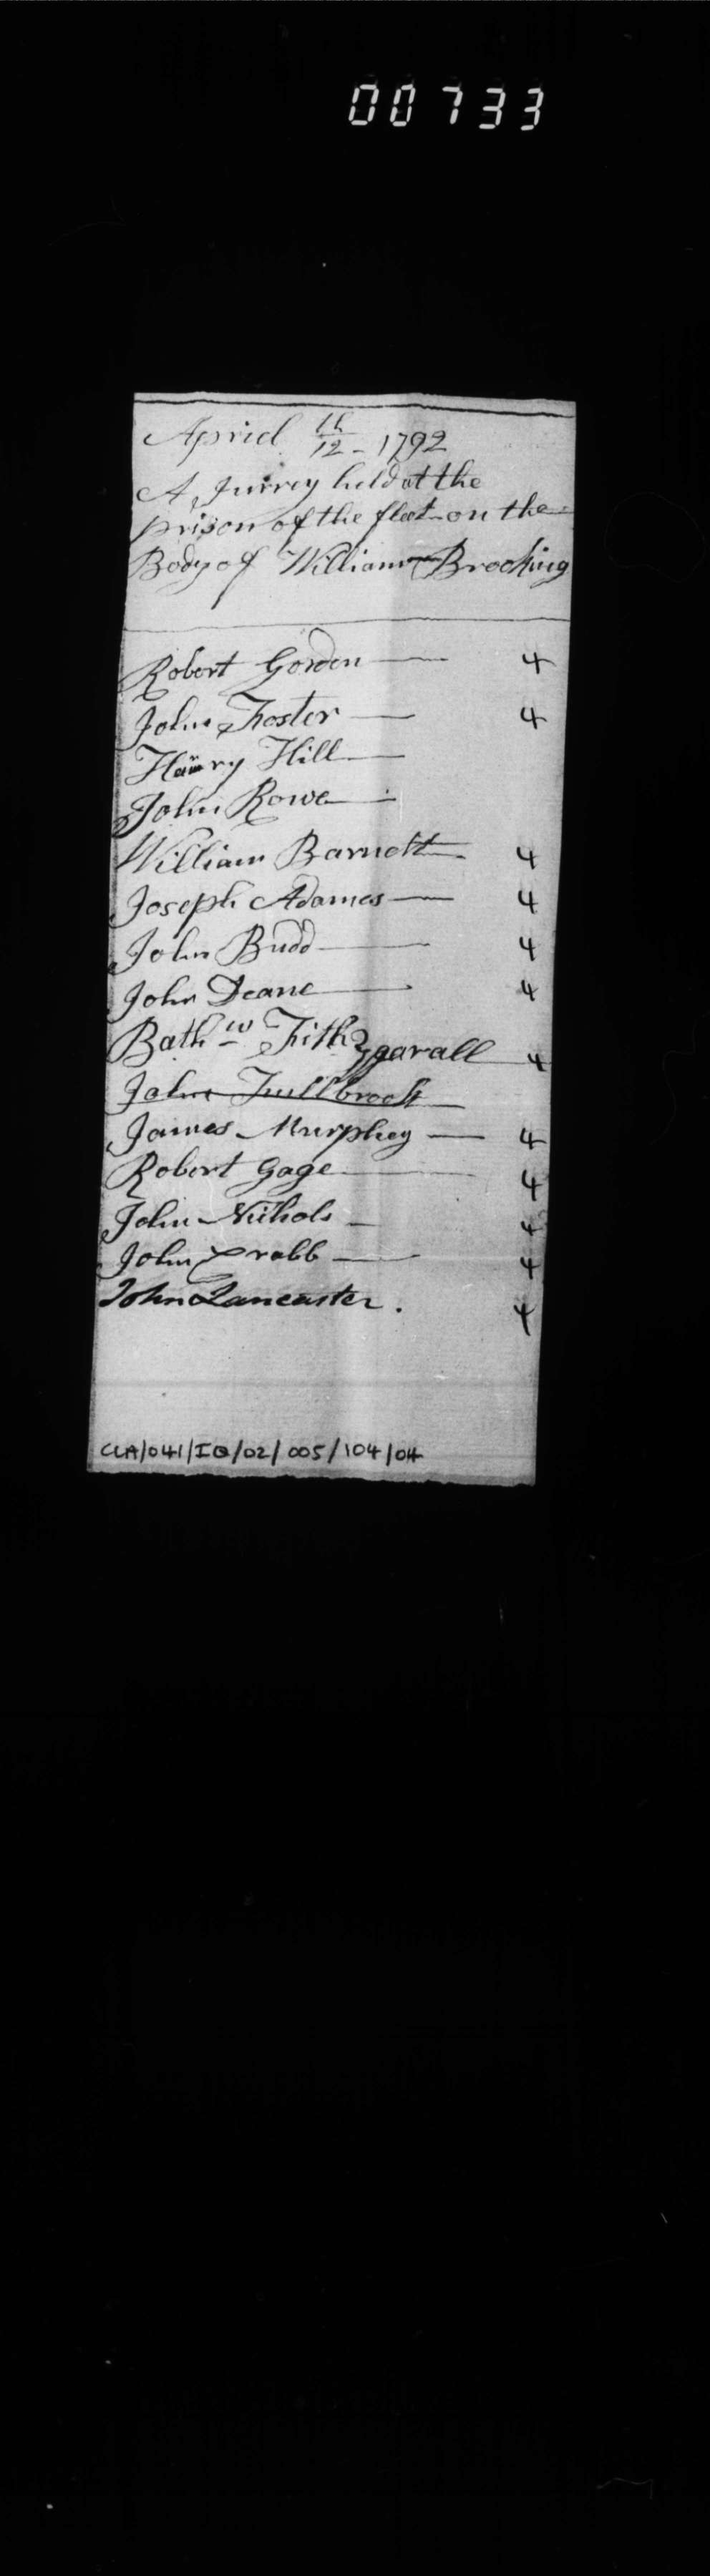 00733
Apriel 12th - 1792
A Jurrey held at the
prison of the fleet - on the
Body of William Brooking
Robert Gorden — 4
John Foster — 4
Harry Hill —
John Rowe —
William Barnett — 4
Joseph Adames — 4
John Budd — 4
John Deane — 4
Bathw Fithzgarall 4
John Fullbrook
James Murphey — 4
Robert Gage — 4
John Nichols — 4
John Prabb — 4
John Lancaster . 4
CLA/041/IQ/02/005/104/04